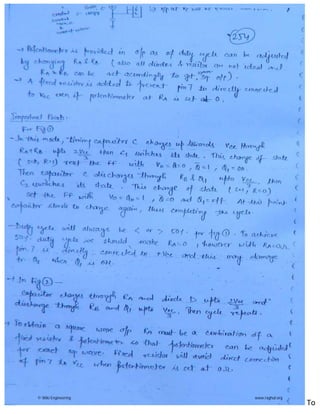 254
→ Potentiometer is provided in o/p as if duty cycle can be adjusted
by changing RA & RB (also all diodes & resistor are not ideal and
RA & RB can be set accordingly to get sq o/p).
→ A fixed resistor is added to prevent pin 7 to directly connected
to Vcc even if potentiometer at RA is set at 0.
Important Points:
For fig ①
→ In this mode, timing capacitor C charges up towards Vcc through
RA+RB upto 2Vcc/3 then C1 switches its state. This change of state
reset the FF with
Then capacitor C discharges through RB & Q1 upto Vcc/3, then
C2 switches its state. This change of state
set the FF with At this point
capacitor starts to charge again, thus completing the cycle.
→ Duty cycle will always be < or > 50% for fig ①. To achieve
50% duty cycle we should make RA = 0, however with RA = 0Ω,
pin 7 is directly connected to +Vcc and this may damage
Q1 when Q1 is ON.
→ In fig ② –
Capacitor charges through RA and diode D upto 2Vcc/3 and
discharge through RB and Q1 upto Vcc/3. Then cycle repeats.
→ To obtain a square wave o/p RA must be a combination of a
fixed resistor & potentiometer so that potentiometer can be adjusted
for exact sq wave. Fixed resistor will avoid direct connection
of pin 7 to Vcc when potentiometer is set at 0Ω.
www.raghul.org
To